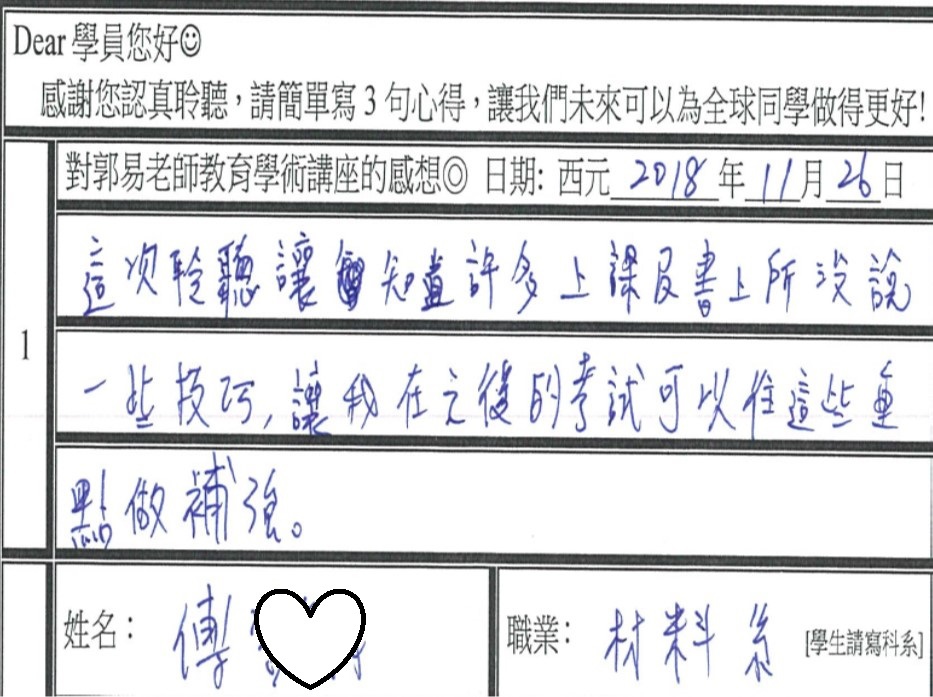 Dear 學員您好☺
感謝您認真聆聽，請簡單寫 3 句心得，讓我們未來可以為全球同學做得更好!
對郭易老師教育學術講座的感想◎ 日期: 西元 2018 年 11 月 26 日
1
這次聆聽讓 知道許多上課及書上所沒說
一些技巧，讓我在之後的考試可以往這些重
點做補強。
姓名： 傅
職業： 材料系 [學生請寫科系]